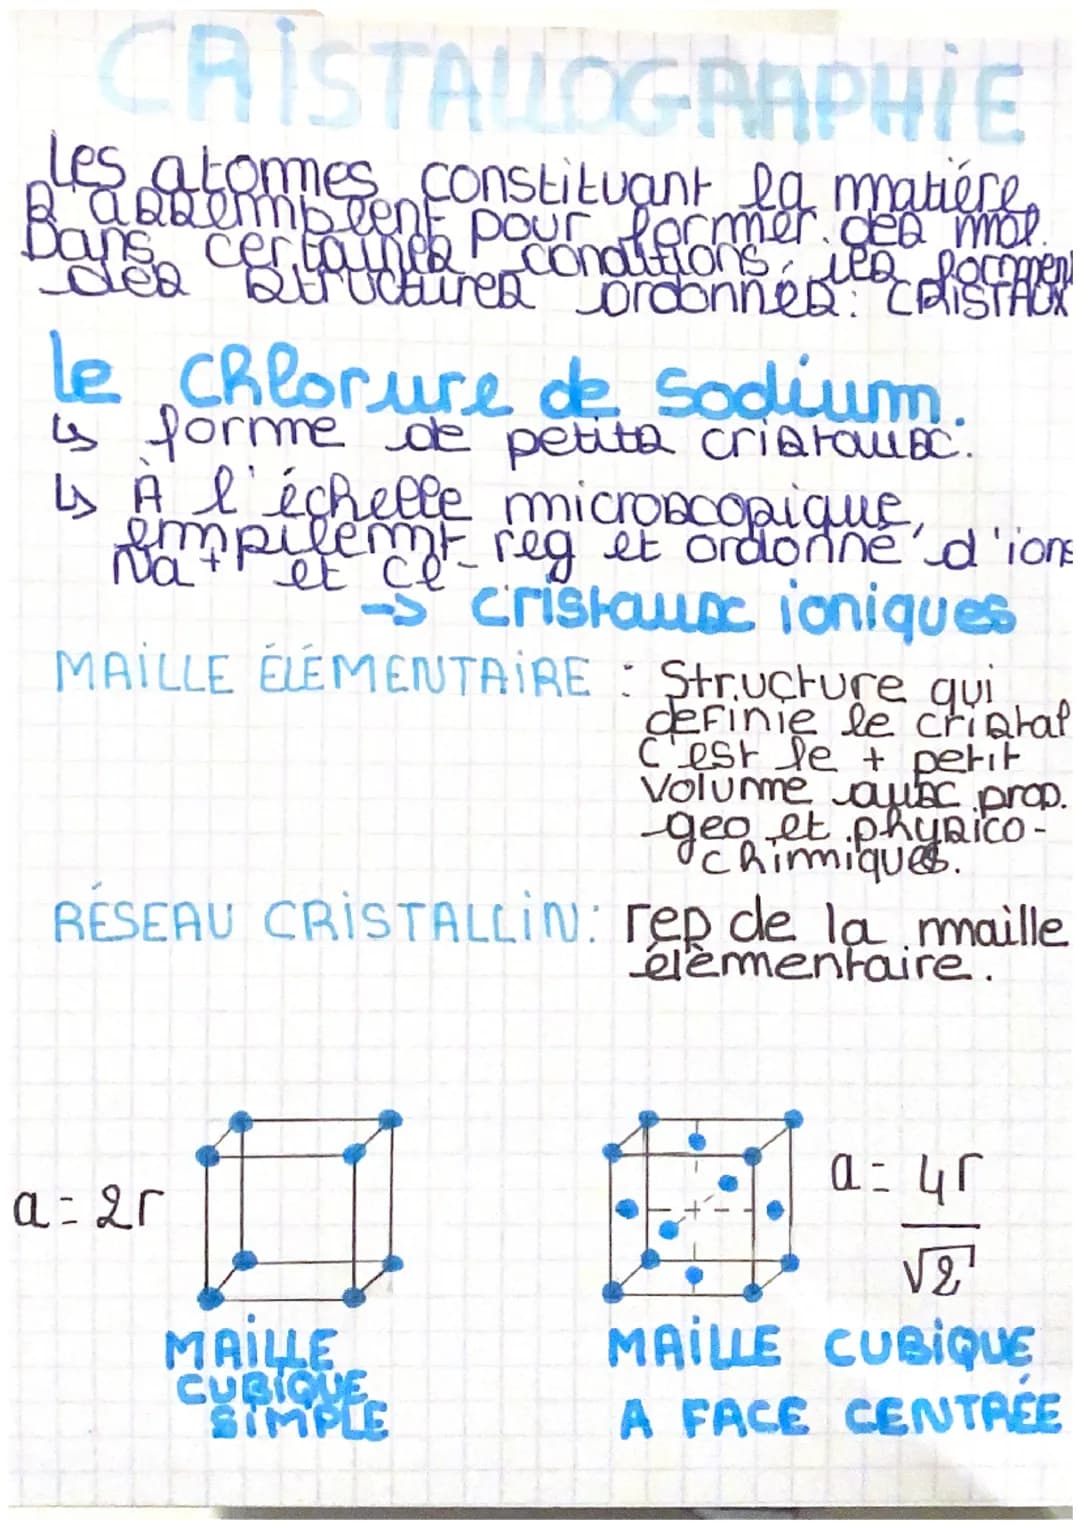 CRISTALLOGRAPHIE
Les atomes constituant la matière,
s'assemblent pour former des mol.
Dans certaines conditions, ils forment
des structures ordonnés: CRISTAUX
le chlorure de sodium.
↳ forme de petits cristaux.
↳ À l'échelle microscopique,
empilemt reg et ordonné d'ions
Na+ et Cl-
-> cristaux ioniques
MAILLE ÉLÉMENTAIRE : Structure qui
definie le cristal
C'est le + petit
volume avec prop.
geo et physico-
chimiques.
RÉSEAU CRISTALLIN: rep de la maille
élémentaire.
a = 2r
a = 4r
√2
MAILLE
CUBIQUE
SIMPLE
MAILLE CUBIQUE
A FACE CENTRÉE